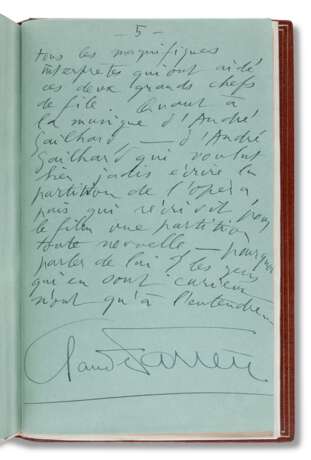 — 5 —
tous les magnifiques
interprètes qui ont aidé
ces deux grands chefs
de file. Quant à
la musique d'André
Gailhard — d'André
Gailhard qui voulut
bien jadis écrire la
partition de l'opéra
puis qui récrivit pour
le film une partition
toute nouvelle — pourquoi
parler de lui ? les gens
qui en sont curieux
n'ont qu'à l'entendre
Claude Farrère